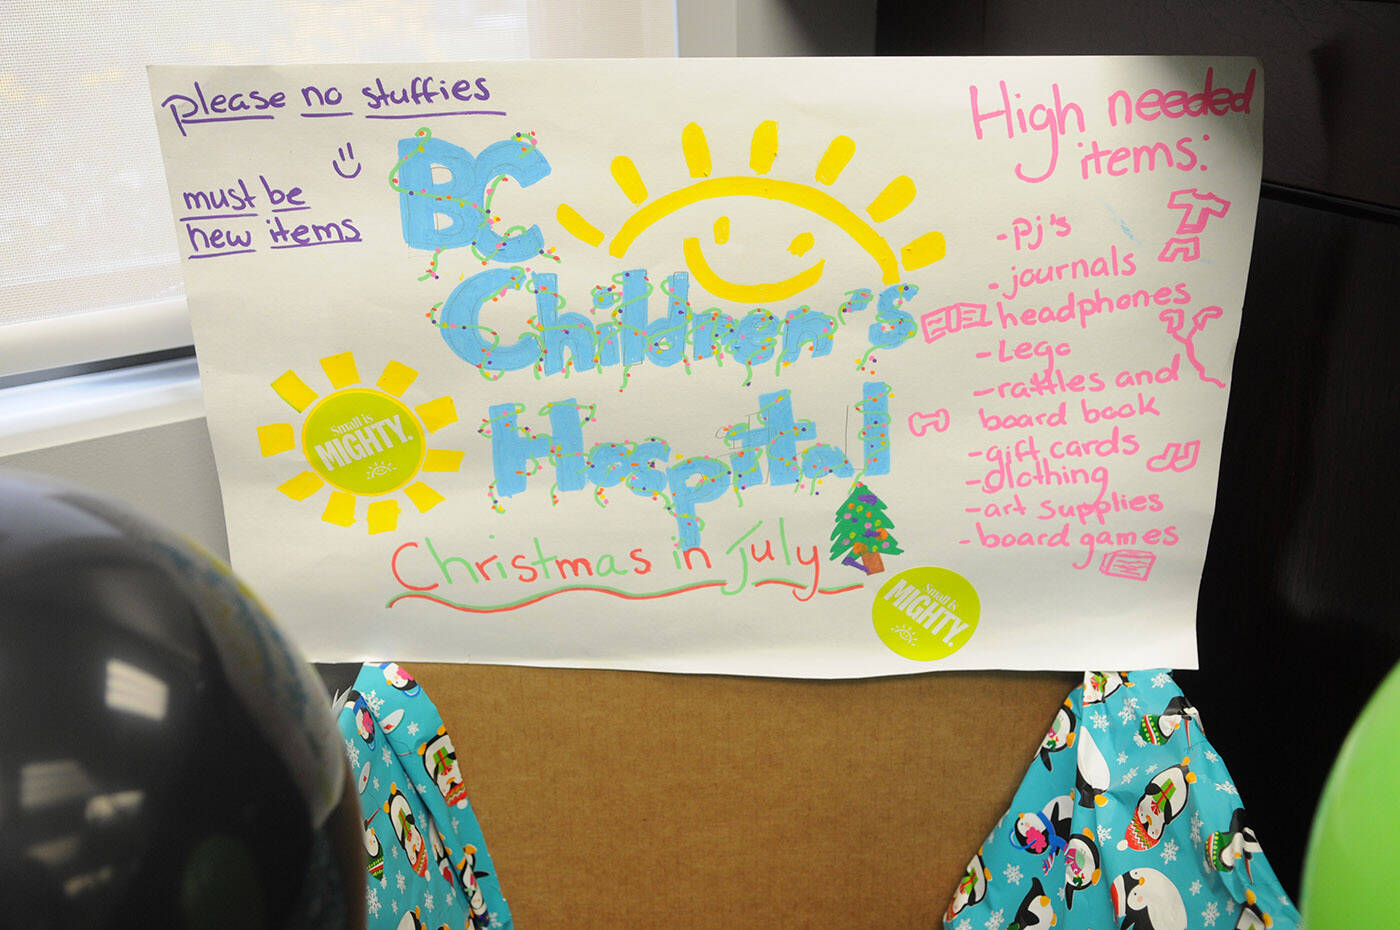 please no stuffies
must be
new items
BC
Children's
Hospital
Christmas in July
Small is
MIGHTY.
Small is
MIGHTY.
High needed
items:
-pj's
-journals
headphones
-Lego
-rattles and
board book
-gift cards
-clothing
-art supplies
-board games